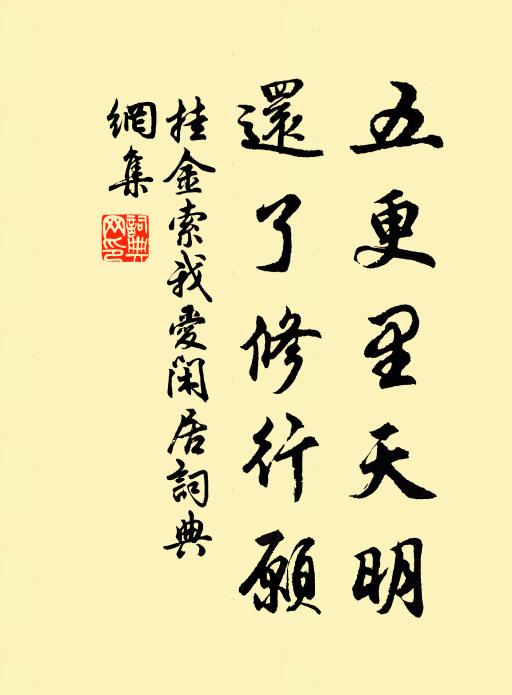 五更里天明
還了修行願
挂金索我愛閑居詞典
網集
詞典
网印